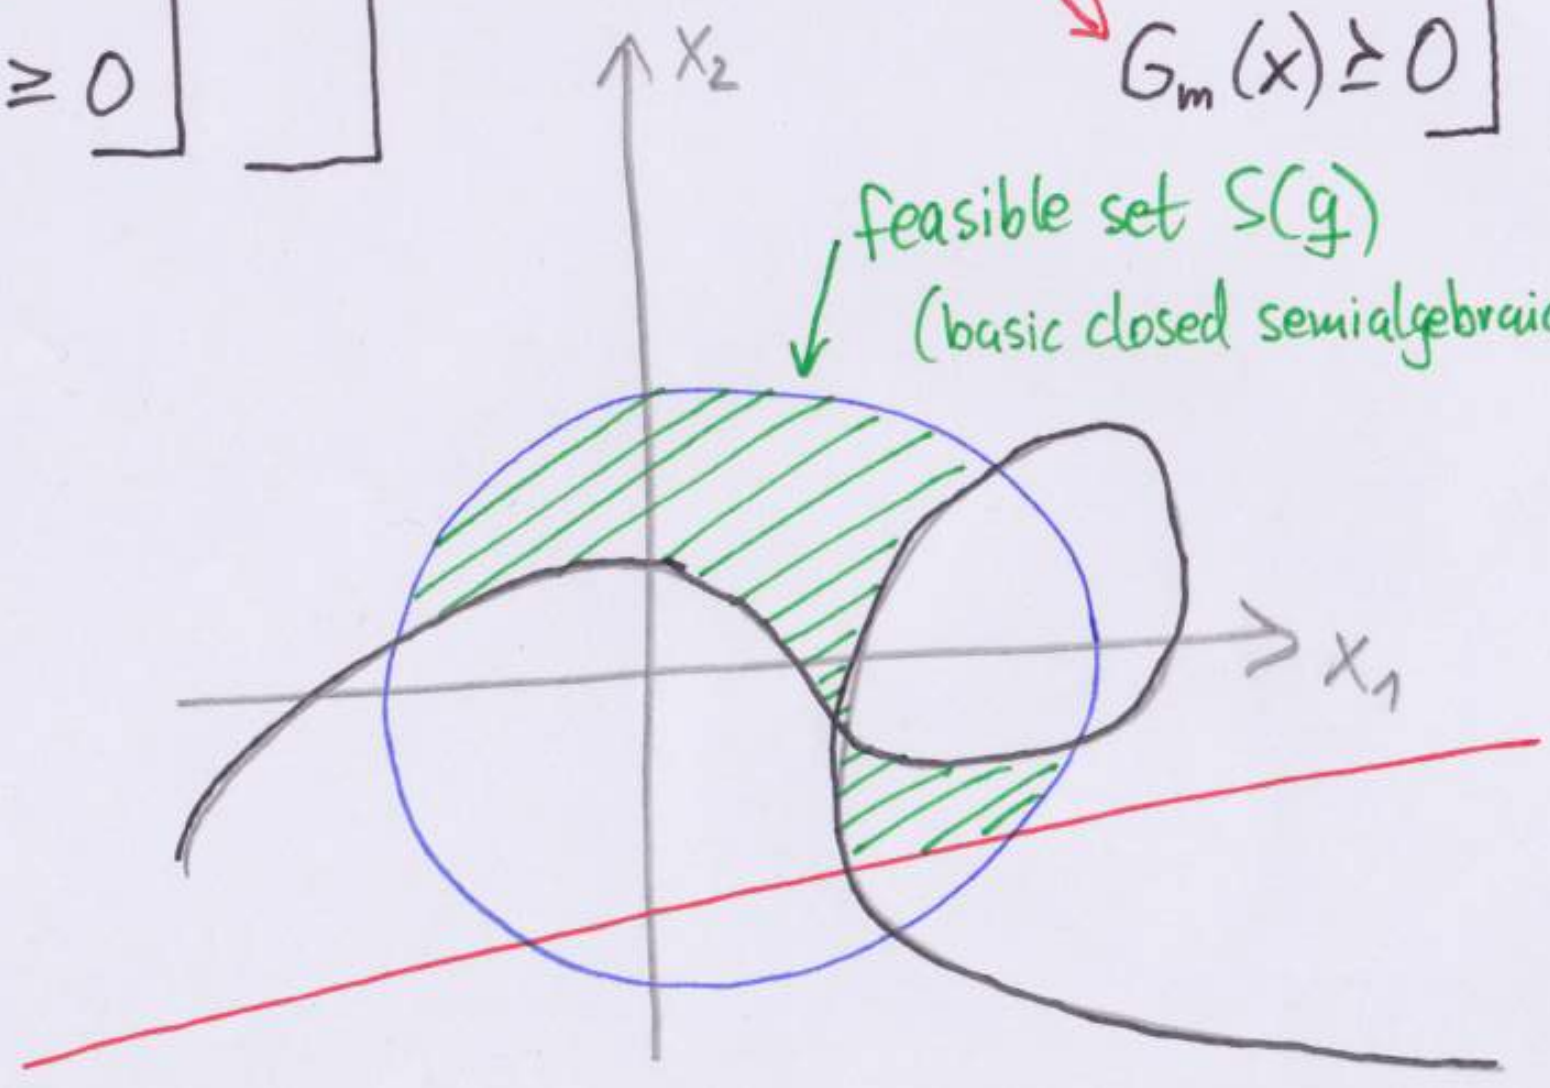 ≥ 0
X₂
Gₘ(x) ⪰ 0
feasible set S(g)
(basic closed semialgebraic
X₁